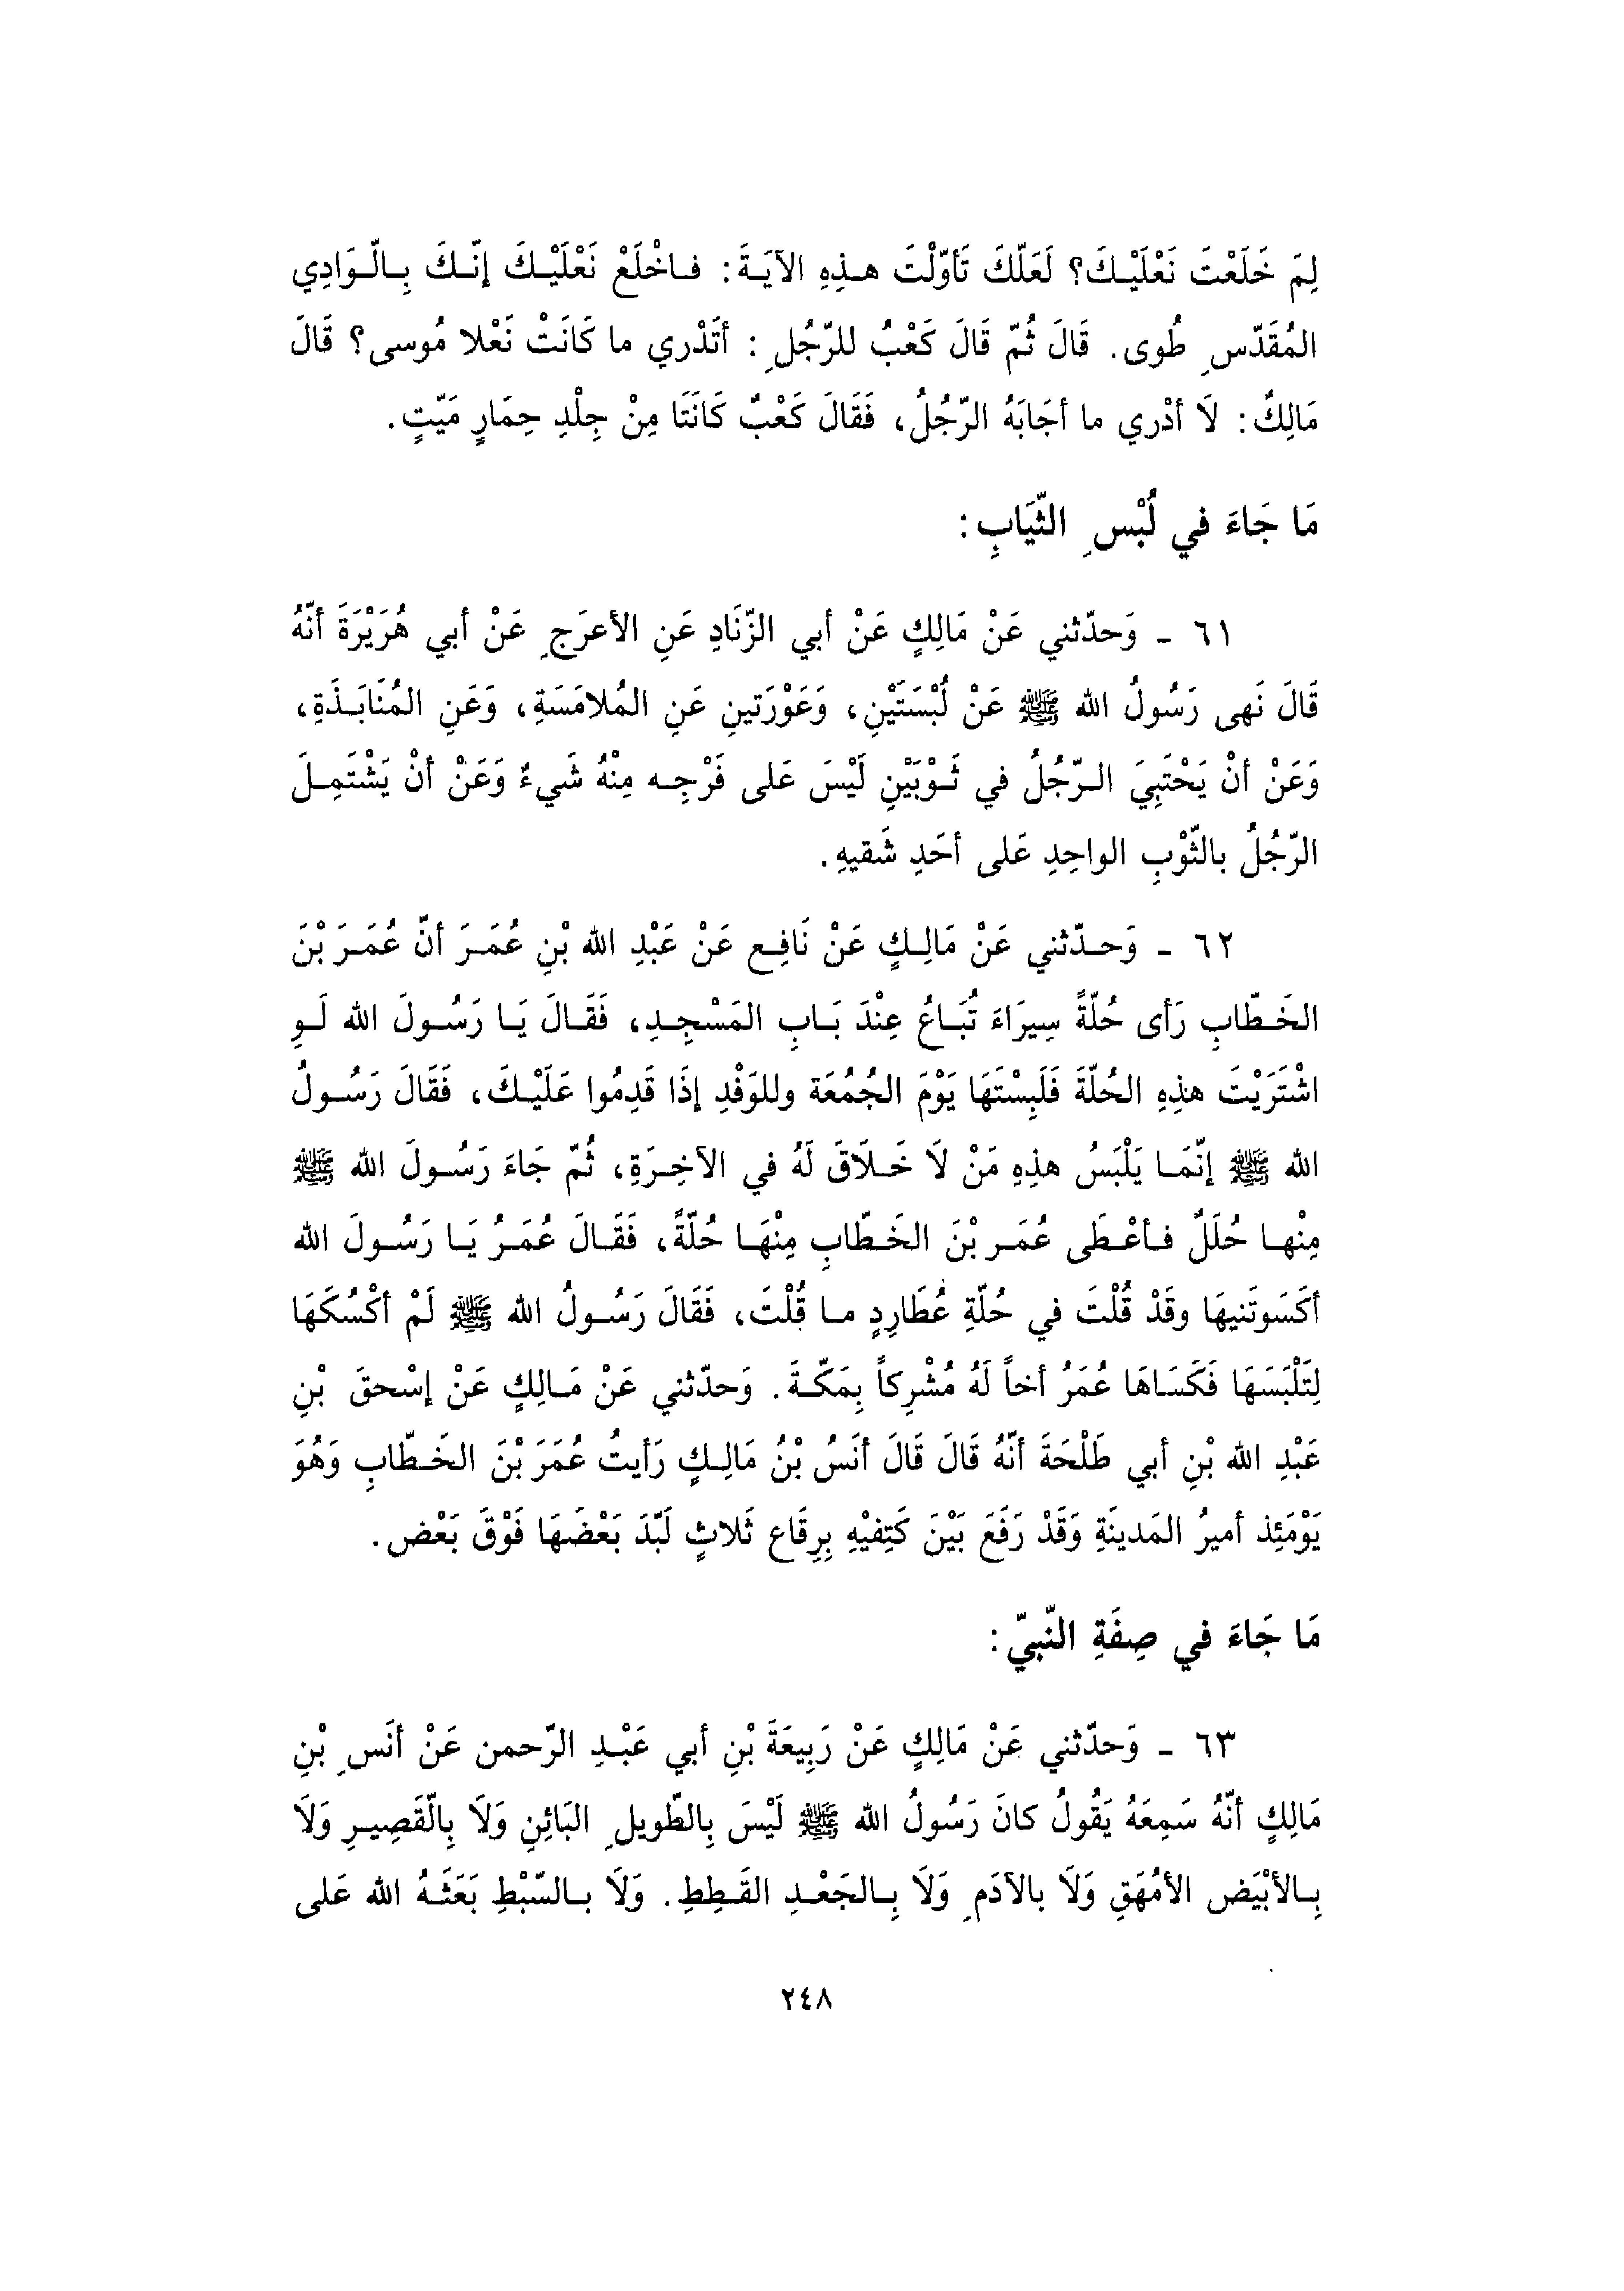 لِمَ خَلَعْتَ نَعْلَيْكَ؟ لَعَلّكَ تَأوّلْتَ هذِهِ الآيَةَ: فاخْلَعْ نَعْلَيْكَ إنّكَ بِالْوَادِي
المُقَدّسِ طُوى. قَالَ ثُمّ قَالَ كَعْبُ للرّجُلِ: أتَدْري ما كَانَتْ نَعْلا مُوسى؟ قَالَ
مَالِكٌ: لَا أدْري ما أجَابَهُ الرّجُلُ، فَقَالَ كَعْبٌ كَانَتَا مِنْ جِلْدِ حِمَارٍ مَيّتٍ.
مَا جَاءَ في لُبْسِ الثّيَابِ:
٦١ ـ وَحدّثني عَنْ مَالِكٍ عَنْ أبي الزّنَادِ عَنِ الأعرَجِ عَنْ أبي هُرَيْرَةَ أنّهُ
قَالَ نَهى رَسُولُ الله ﷺ عَنْ لُبْسَتَيْنِ، وَعَوْرَتينِ عَنِ المُلامَسَةِ، وَعَنِ المُنَابَذَةِ،
وَعَنْ أنْ يَحْتَبِيَ الرّجُلُ في ثَوْبَيْنِ لَيْسَ عَلى فَرْجِه مِنْهُ شَيءٌ وَعَنْ أنْ يَشْتَمِلَ
الرّجُلُ بالثّوْبِ الواحِدِ عَلى أحَدِ شَقيهِ.
٦٢ ـ وَحدّثني عَنْ مَالِكٍ عَنْ نَافِعٍ عَنْ عَبْدِ الله بْنِ عُمَرَ أنّ عُمَرَ بْنَ
الخَطّابِ رَأى حُلّةً سِيرَاءَ تُبَاعُ عِنْدَ بَابِ المَسْجِدِ، فَقَالَ يَا رَسُولَ الله لَوِ
اشْتَرَيْتَ هذِهِ الحُلّةَ فَلَبِسْتَهَا يَوْمَ الجُمُعَة وللوَفْدِ إذَا قَدِمُوا عَلَيْكَ، فَقَالَ رَسُولُ
الله ﷺ إنّمَا يَلْبَسُ هذِهِ مَنْ لَا خَلَاقَ لَهُ في الآخِرَةِ، ثُمّ جَاءَ رَسُولَ الله ﷺ
مِنْها حُلَلٌ فأعْطَى عُمَر بْنَ الخَطّابِ مِنْهَا حُلّةً، فَقَالَ عُمَرُ يَا رَسُولَ الله
أكَسَوتَنيهَا وقَدْ قُلْتَ في حُلّةِ عُطَارِدٍ ما قُلْتَ، فَقَالَ رَسُولُ الله ﷺ لَمْ أكْسُكَهَا
لِتَلْبَسَهَا فَكَسَاهَا عُمَرُ أخاً لَهُ مُشْرِكاً بِمَكّةَ. وَحدّثني عَنْ مَالِكٍ عَنْ إسْحقَ بْنِ
عَبْدِ الله بْنِ أبي طَلْحَةَ أنّهُ قَالَ قَالَ أنَسُ بْنُ مَالِكٍ رَأيتُ عُمَرَ بْنَ الخَطّابِ وَهُوَ
يَوْمَئِذ أميرُ المَدينَةِ وَقَدْ رَفَعَ بَيْنَ كَتِفيْهِ بِرِقَاعٍ ثَلاثٍ لَبّدَ بَعْضَهَا فَوْقَ بَعْض.
مَا جَاءَ في صِفَةِ النّبيّ:
٦٣ ـ وَحدّثني عَنْ مَالِكٍ عَنْ رَبِيعَةَ بْنِ أبي عَبْدِ الرّحمن عَنْ أنَسِ بْنِ
مَالِكٍ أنّهُ سَمِعَهُ يَقُولُ كانَ رَسُولُ الله ﷺ لَيْسَ بِالطّويلِ البَائِنِ وَلَا بِالْقَصِيرِ وَلَا
بِالأبْيَض الأمْهَقِ وَلَا بالآدَمِ وَلَا بِالجَعْدِ القَطِطِ. وَلَا بالسّبْطِ بَعَثَهُ الله عَلى
٢٤٨